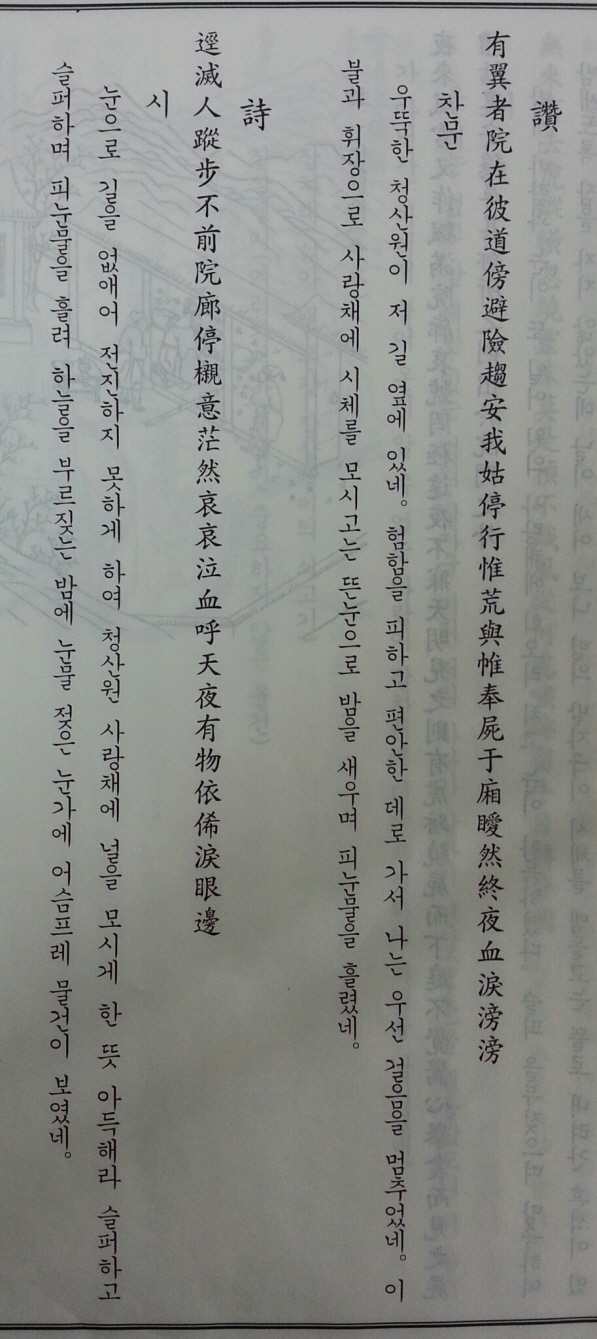 讚
有翼者院在彼道傍避險趨安我姑停行惟荒與帷奉屍于廂瞹然終夜血淚滂滂
찬문
우뚝한 청산원이 저 길 옆에 있네。 험함을 피하고 편안한 데로 가서 나는 우선 걸음을 멈추었네。 이
불과 휘장으로 사랑채에 시체를 모시고는 뜬눈으로 밤을 새우며 피눈물을 흘렸네。
詩
逕滅人蹤步不前院廊停櫬意茫然哀哀泣血呼天夜有物依俙淚眼邊
시
눈으로 길을 없애어 전진하지 못하게 하여 청산원 사랑채에 널을 모시게 한 뜻 아득해라 슬퍼하고
슬퍼하며 피눈물을 흘려 하늘을 부르짖는 밤에 눈물 젖은 눈가에 어슴프레 물건이 보였네。